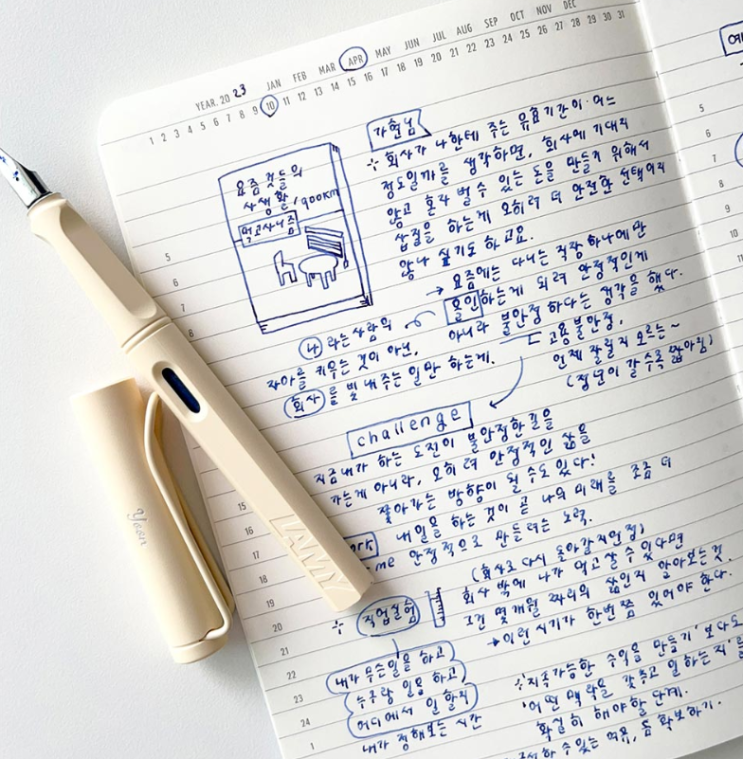 YEAR. 20 23 JAN FEB MAR APR MAY JUN JUL AUG SEP OCT NOV DEC
1 2 3 4 5 6 7 8 9 10 11 12 13 14 15 16 17 18 19 20 21 22 23 24 25 26 27 28 29 30 31
요즘 것들의
사생활, 900km
먹고사니즘
가현님
회사가 나한테 주는 유효기간이 어느
정도일까를 생각하면, 회사에 기대지
않고 혼자 벌 수 있는 돈을 만들기 위해서
삽질을 하는게 오히려 더 안전한 선택이지
않나 싶기도 하고요.
→ 요즘에는 다니는 직장 하나에만
올인하는게 되려 안정적인게
아니라 불안정하다는 생각을 했다.
고용불안정,
언제 잘릴지 모르는~
(정년이 갈수록 짧아짐)
나 라는 사람의
자아를 키우는 것이 아닌,
회사를 빛내주는 일만 하는게.
challenge
지금 내가 하는 도전이 불안정한 길을
가는게 아니라, 오히려 안정적인 삶을
찾아가는 방향이 될 수도 있다!
내 일을 하는 것이 곧 나의 미래를 조금 더
me 안정적으로 만들려는 노력.
직업실험
(회사로 다시 돌아갈지언정)
회사 밖에 나가 먹고 살 수 있다면
그건 몇개월 짜리의 삶인지 알아보는 것.
→ 이런 시기가 한번쯤 있어야 한다.
내가 무슨일을 하고
누구랑 일을 하고,
어디에서 일 할지
내가 정해보는 시간
'지속가능한 수익을 만들기' 보다도
'어떤 맥락을 갖추고 일하는지'를
확실히 해야할 단계.
5
6
7
8
15
16
17
18
19
20
21
22
23
24
1
5
6
7
8
10
11
LAMY
Yoon